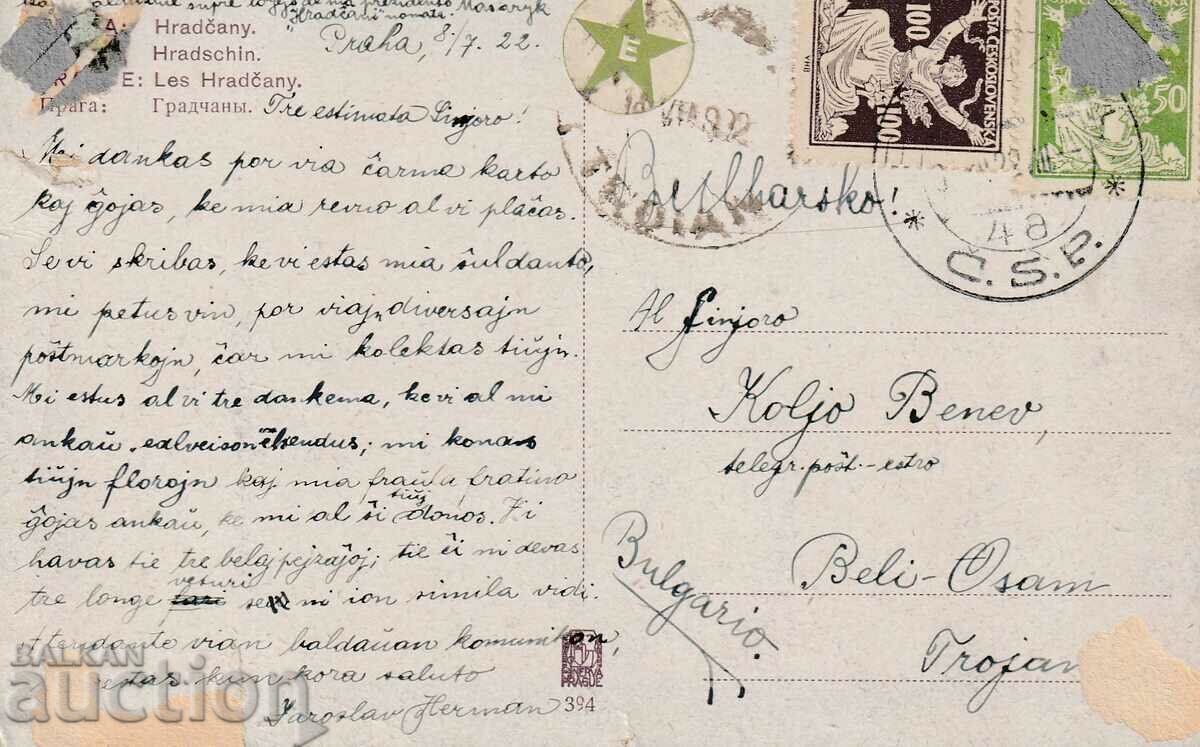 supre loĝas nia prezidento Masaryk
"Hradčani" nomata.
A: Hradčany.
Hradschin.
E: Les Hradčany.
Прага: Градчаны.
Praha, 8./7. 22.
Tre estimata Sinjoro!
Mi dankas por via ĉarma karto
kaj ĝojas, ke mia revuo al vi plaĉas.
Se vi skribas, ke vi estas mia ŝuldanto,
mi petus vin, por viajn diversajn
poŝtmarkojn, ĉar mi kolektas tiujn.
Mi estus al vi tre dankema, ke vi al mi
ankaŭ „edlveison" sendus; mi konas
tiujn florojn kaj mia fraŭlu fratino
ĝojas ankaŭ, ke mi al ŝi tiuj donos. Vi
havas tie tre belaj pejzaĝoj; tie ĉi ni devas
tre longe veturi se ni ion simila vidi.
Atendante vian baldaŭan komunikon,
estas kun kora saluto
Jaroslav Herman
E
TROIAN
Bulharsko!
100
100
POSTA ČESKOSLOVENSKÁ
50
4a
Č.S.P.
Al Sinjoro
Koljo Benev,
telegr. poŝt.-estro
Beli-Osam
Bulgario.
Trojan
MINERVA
PRAGUE
394
BALKAN
auction